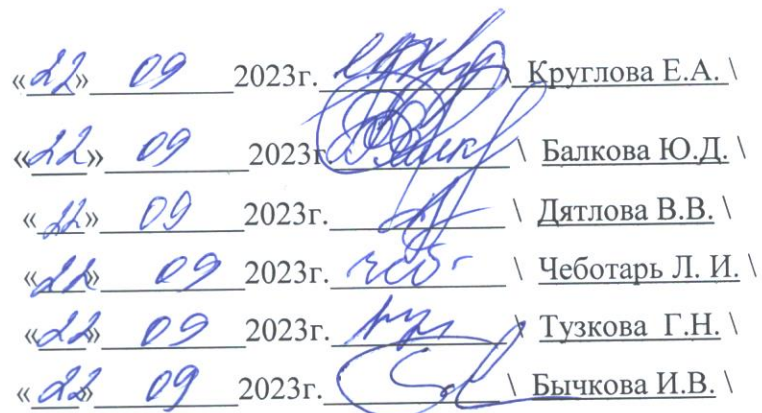 «22» 09 2023г. \ Круглова Е.А. \
«22» 09 2023г. \ Балкова Ю.Д. \
«22» 09 2023г. \ Дятлова В.В. \
«22» 09 2023г. \ Чеботарь Л. И. \
«22» 09 2023г. \ Тузкова Г.Н. \
«22» 09 2023г. \ Бычкова И.В. \